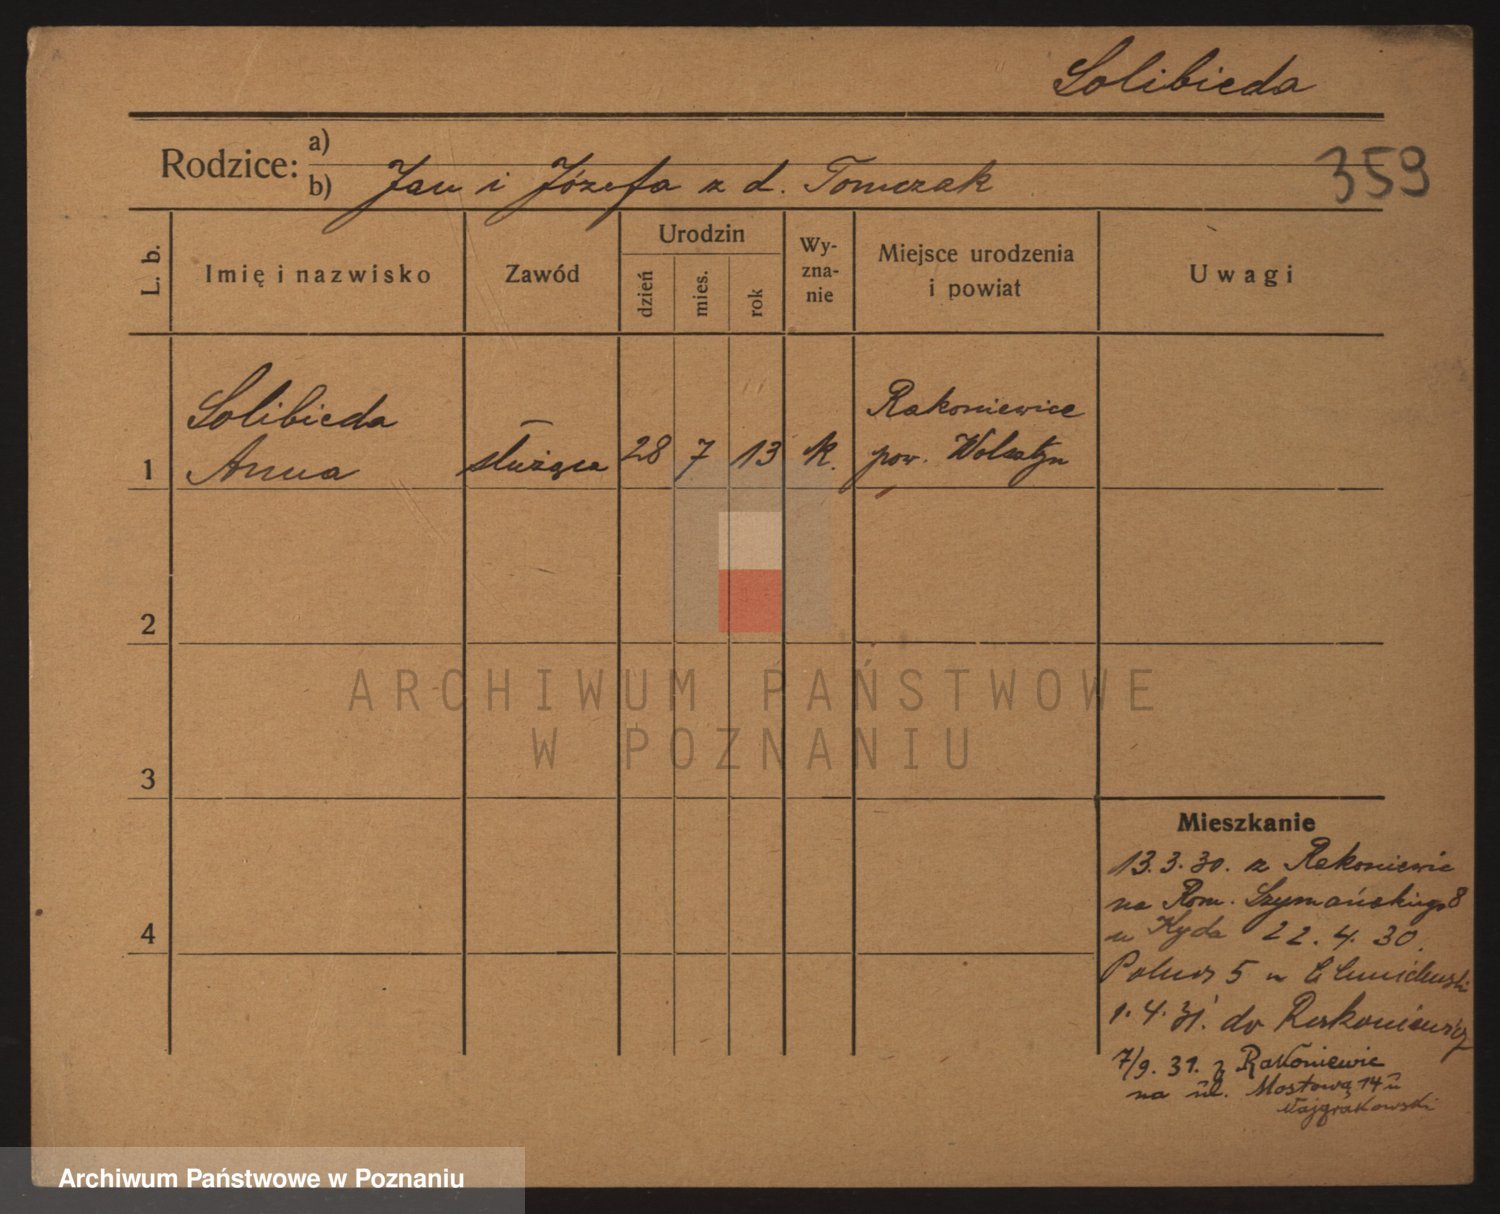 Solibieda
Rodzice: a)
b) Jan i Józefa z d. Tomczak
359
L. b.
Imię i nazwisko
Zawód
Urodzin
dzień
mies.
rok
Wy-
zna-
nie
Miejsce urodzenia
i powiat
Uwagi
Solibieda
Anna
1
służąca
28
7
13
k.
Rakoniewice
pow. Wolsztyn
2
ARCHIWUM PAŃSTWOWE
W POZNANIU
3
4
Mieszkanie
13.3.30. z Rakoniewic
na Rom. Szymańskiego 8
u Kyda 22.4.30.
5 u
1.4.31. do Rakoniewic
7/9.31. z Rakoniewic
na ul. Mostową 14 u
Archiwum Państwowe w Poznaniu